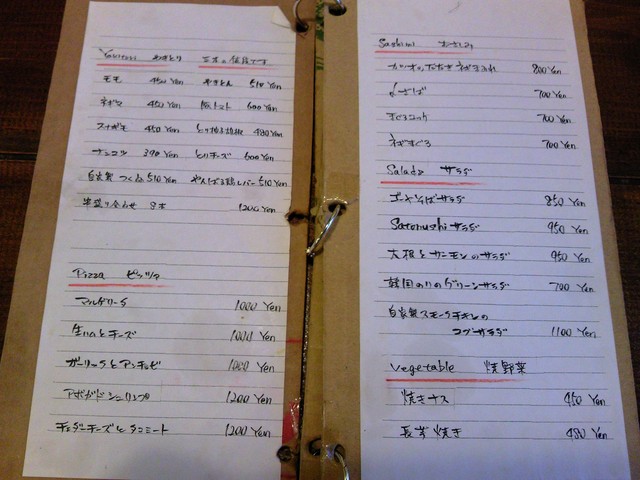 Yakitori やきとり 二本の値段です
モモ 450 Yen やきとん 510 Yen
ネギマ 450 Yen 豚トマト 600 Yen
スナギモ 450 Yen とり柚子胡椒 480 Yen
ナンコツ 390 Yen とりチーズ 600 Yen
自家製つくね 510 Yen やんばる鶏レバー 510 Yen
串盛り合わせ 8本 1200 Yen
Pizza ピッツァ
マルゲリータ 1000 Yen
生ハムとチーズ 1000 Yen
ガーリックとアンチョビ 1000 Yen
アボガドシュリンプ 1200 Yen
チェダーチーズとタコミート 1200 Yen
Sashimi おさしみ
カツオのたたき ネギまみれ 800 Yen
〆さば 700 Yen
まぐろユッケ 700 Yen
ネギまぐろ 700 Yen
Salada サラダ
ゴーヤそばサラダ 850 Yen
Satonushi サラダ 950 Yen
大根とサーモンのサラダ 950 Yen
韓国のりのグリーンサラダ 700 Yen
自家製スモークチキンの
コブサラダ 1100 Yen
Vegetable 焼野菜
焼きナス 450 Yen
長芋焼き 480 Yen